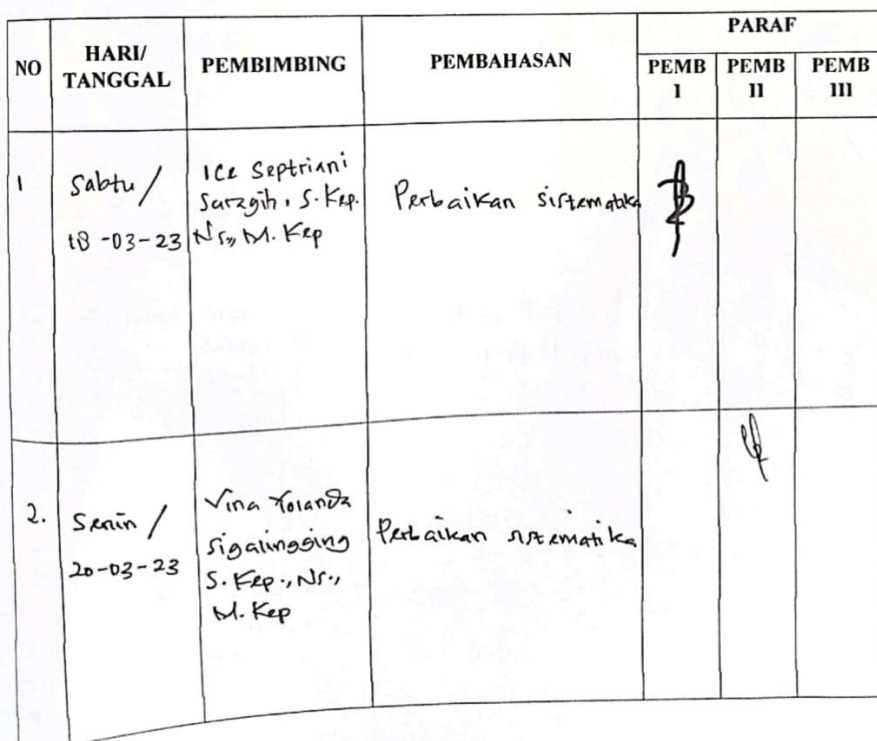 NO HARI/ TANGGAL PEMBIMBING PEMBAHASAN PARAF
PEMB I PEMB II PEMB III
1 Sabtu / 18-03-23
Ice Septriani
Saragih, S. Kep.
Ns,, M. Kep
Perbaikan sistematika
2. Senin / 20-03-23
Vina Yolanda
Sigalingging
S. Kep., Ns.,
M. Kep
Perbaikan sistematika